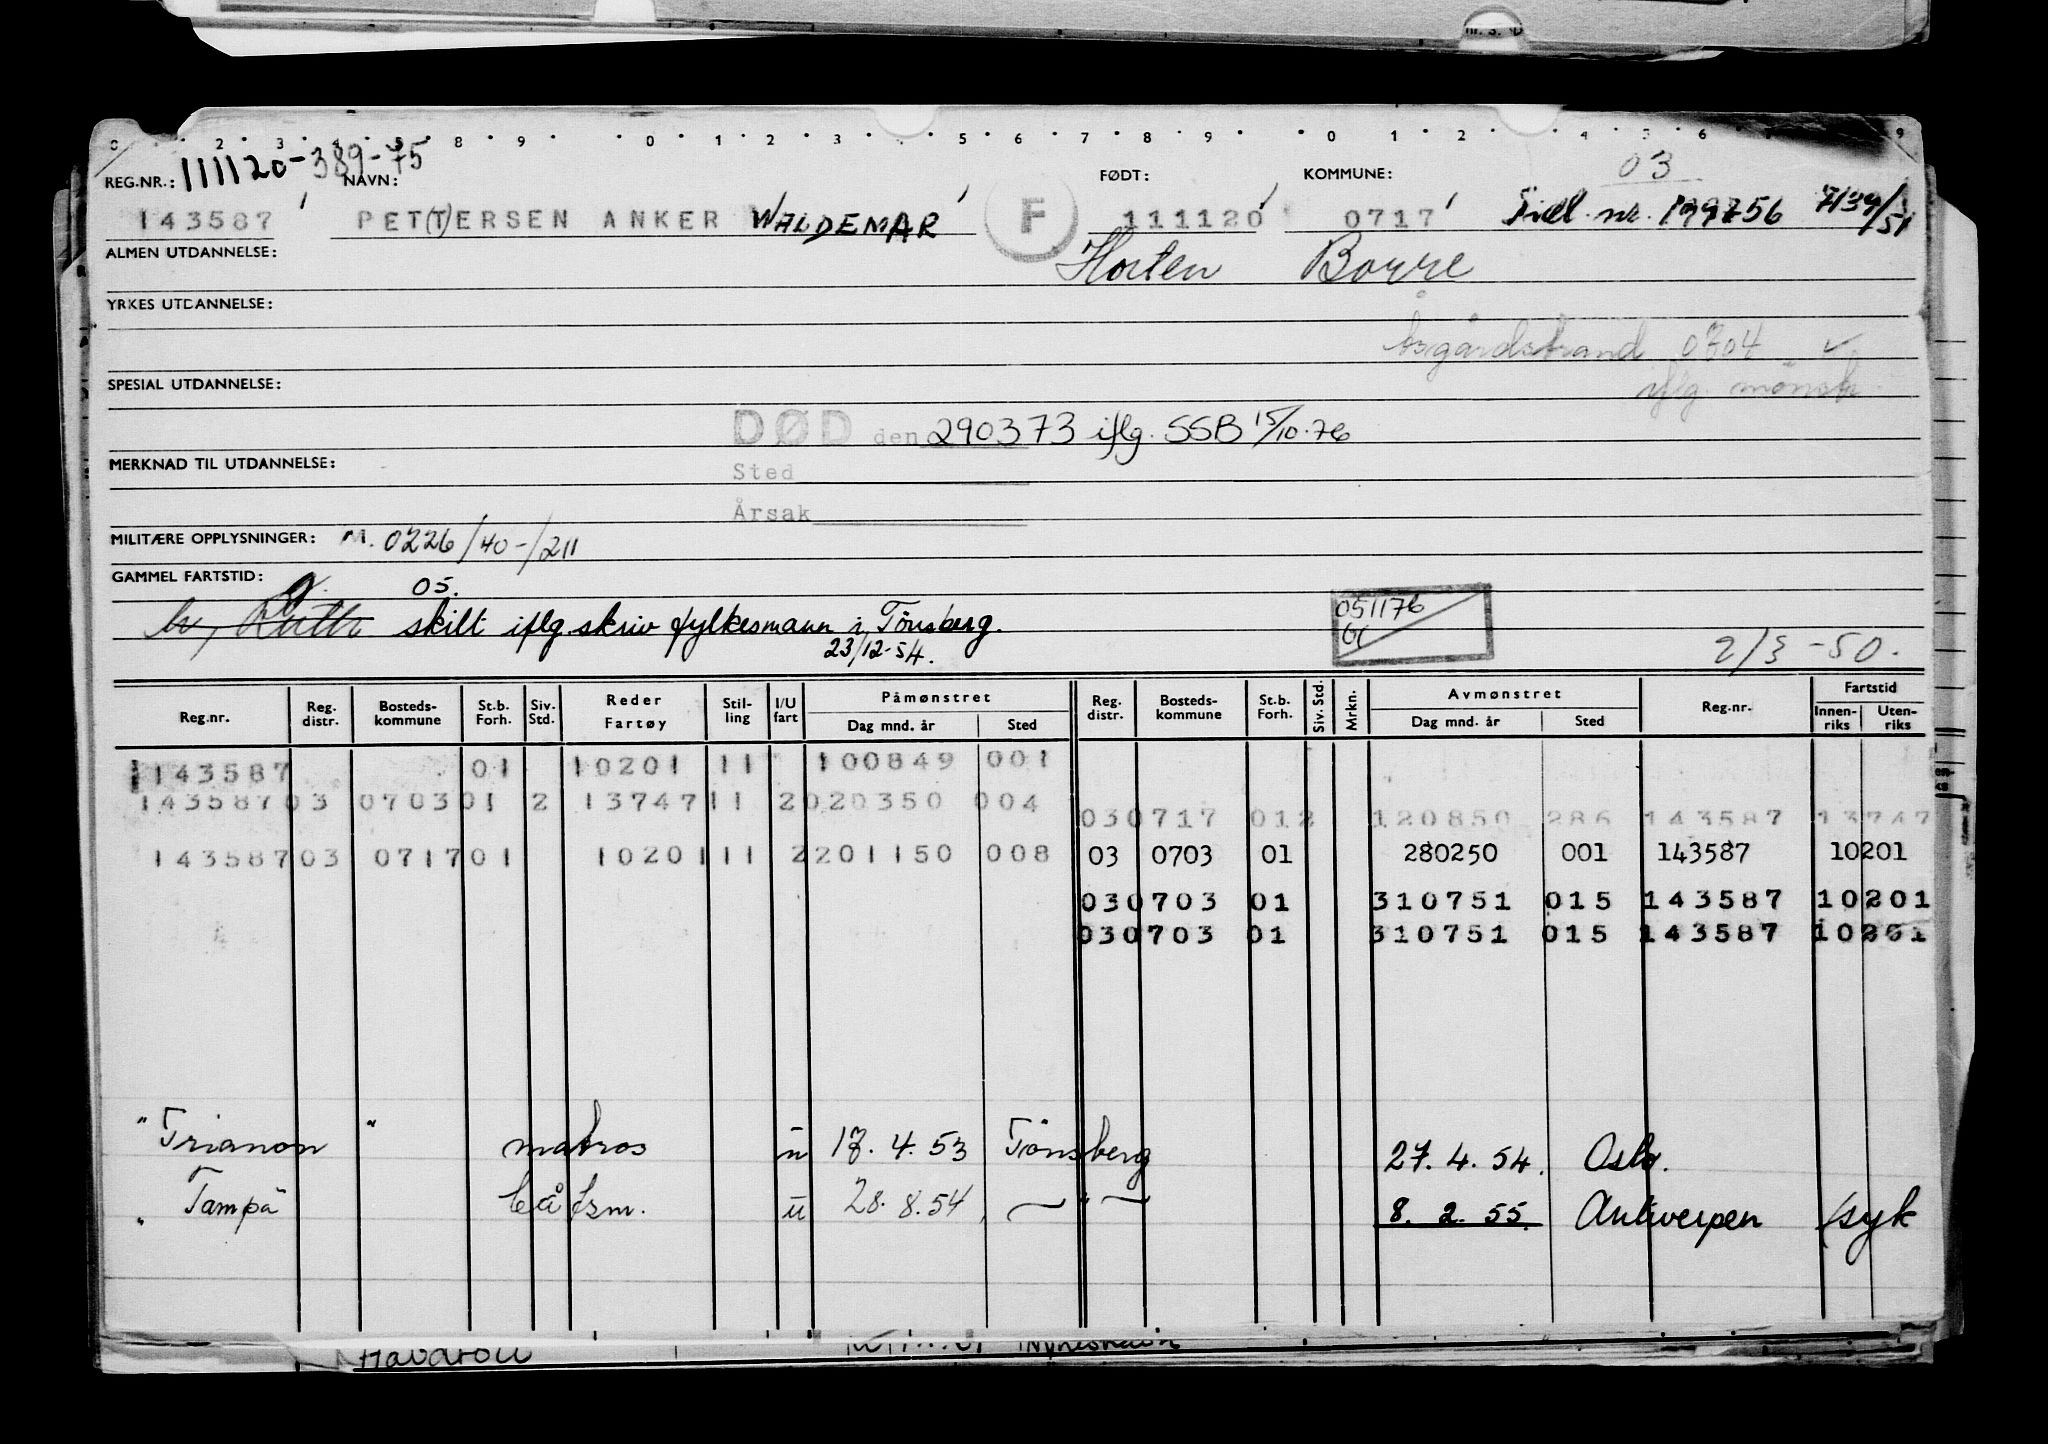 nr. S.
111120-389-75
REG.NR.: NAVN: FØDT: KOMMUNE: 03
143587 PET(T)ERSEN ANKER WALDEMAR F 111120 0717 Tidl. nr. 199756 7139/51
ALMEN UTDANNELSE: Horten Borre
YRKES UTDANNELSE:
Åsgårdstrand 0704
SPESIAL UTDANNELSE: iflg. mønstr.
DØD den 290373 iflg. SSB 15/10.76
MERKNAD TIL UTDANNELSE: Sted
Årsak
MILITÆRE OPPLYSNINGER: M. 0226/40-/211
GAMMEL FARTSTID: 05. 051176
Ruth skilt iflg. skriv fylkesmann i Tönsberg.
23/12-54. 2/3-50.
Reg.nr. Reg. distr. Bosteds-kommune St.b. Forh. Siv. Std. Reder Fartøy Stil-ling I/U fart Påmønstret Dag mnd. år Sted Reg. distr. Bosteds-kommune St.b. Forh. Siv. Std. Mrkn. Avmønstret Dag mnd. år Sted Reg.nr. Fartstid Innen-riks Uten-riks
143587 01 10201 11 100849 001
143587 03 0703 01 2 13747 11 2 020350 004
030717 012 120850 286 143587 13747
143587 03 0717 01 10201 11 2 201150 008 03 0703 01 280250 001 143587 10201
030703 01 310751 015 143587 10201
030703 01 310751 015 143587 10201
"Trianon" matros u 18.4.53 Tönsberg 27.4.54. Oslo.
"Tampa" båtsm. u 28.8.54 —"— 8.2.55. Antwerpen /syk